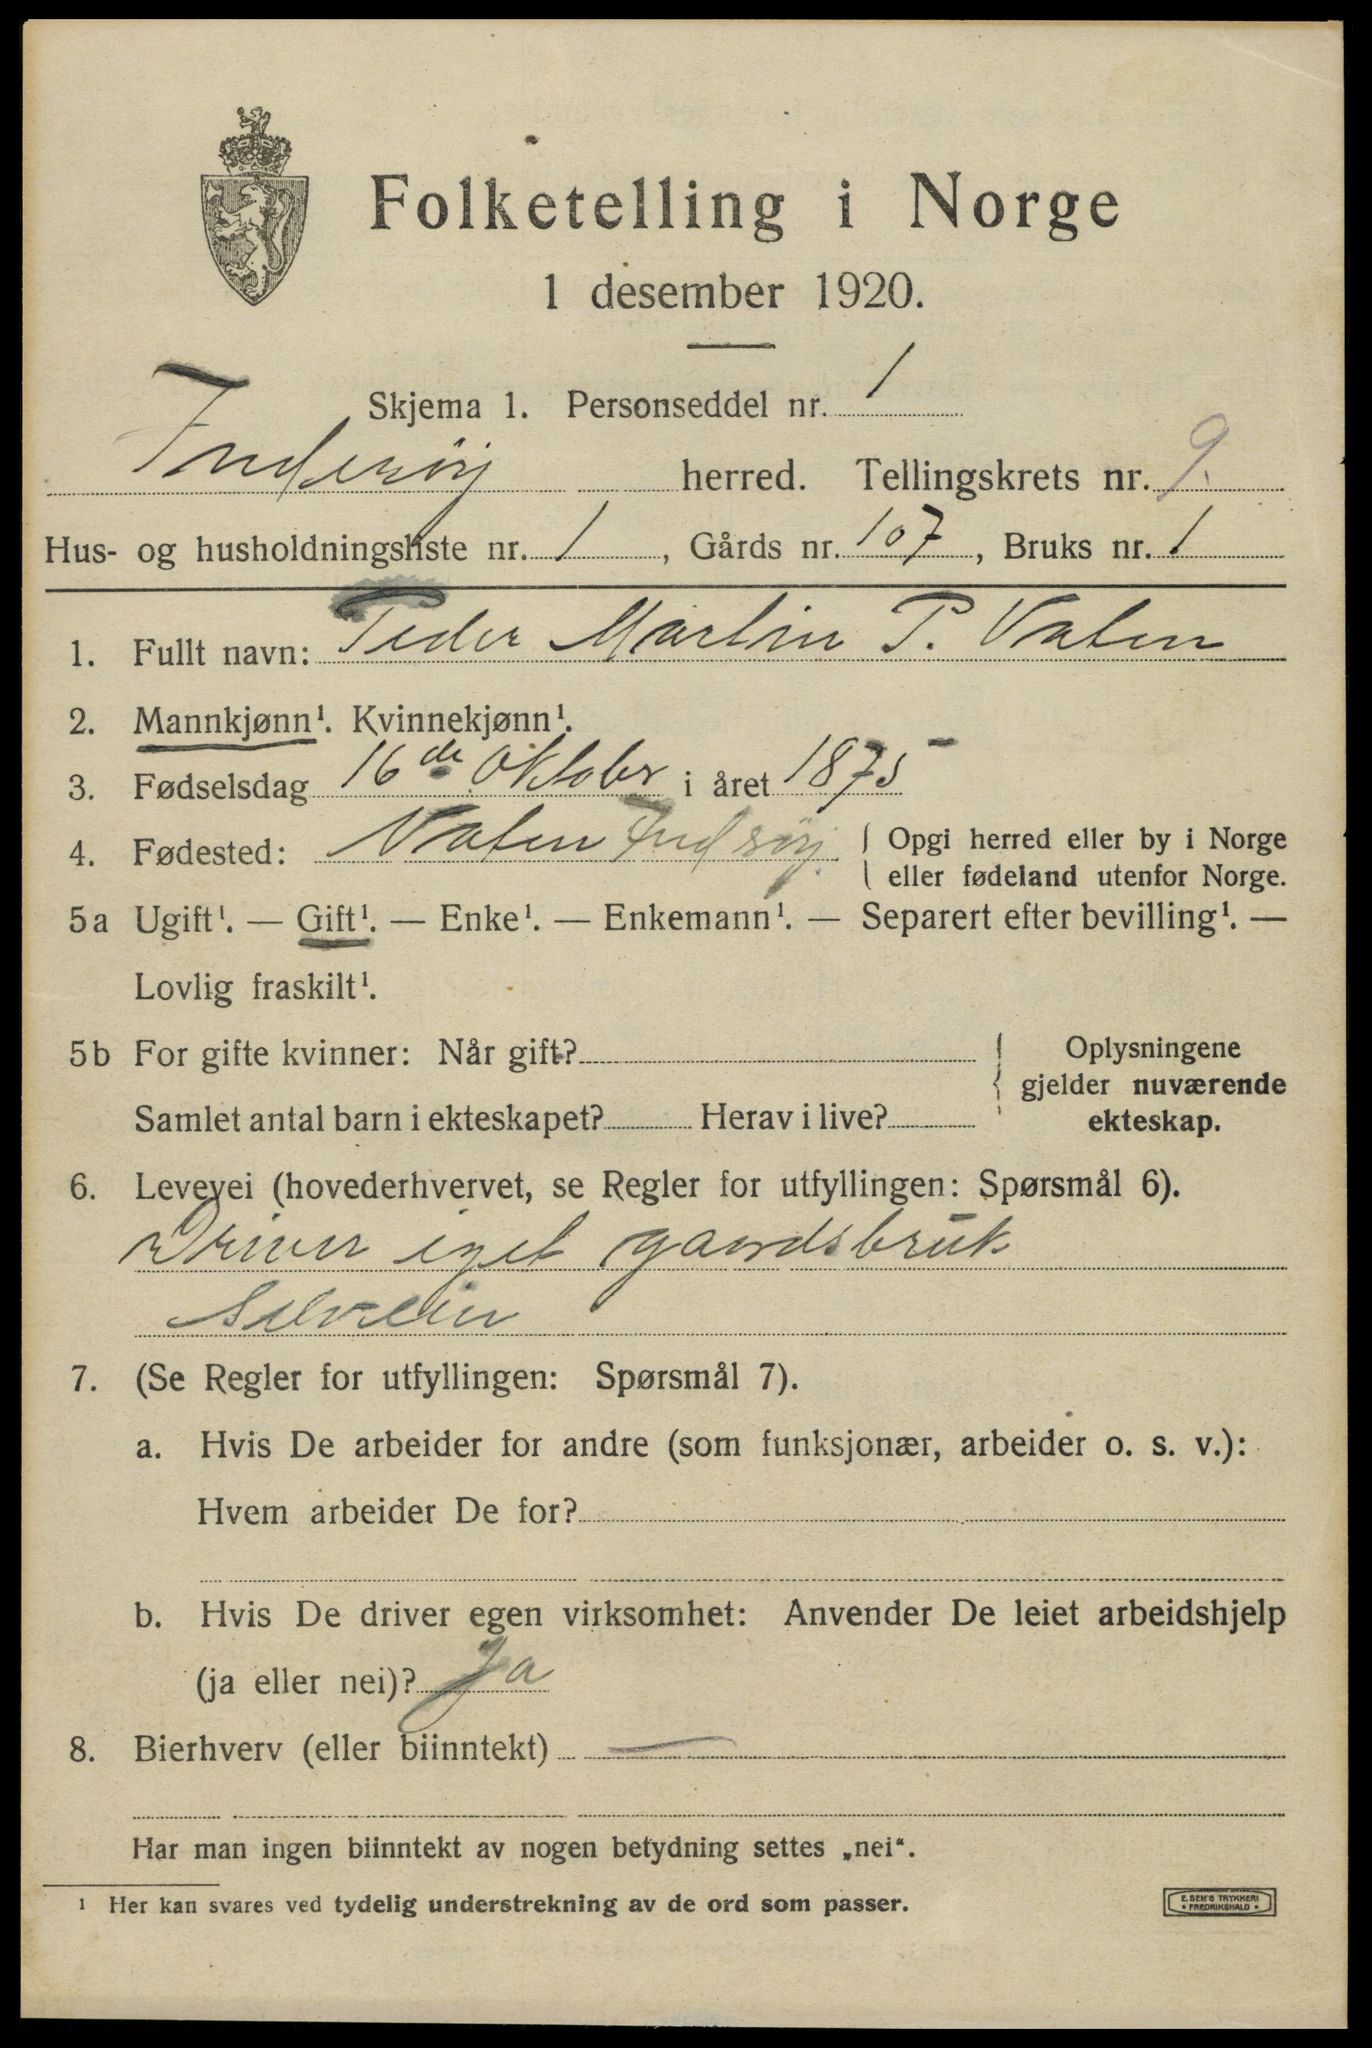 Folketelling i Norge
1 desember 1920.
Skjema 1. Personseddel nr. 1
Inderøy herred. Tellingskrets nr. 9.
Hus- og husholdningsliste nr. 1, Gårds nr. 107, Bruks nr. 1
1. Fullt navn: Peder Martin P. Vaten
2. Mannkjønn¹. Kvinnekjønn¹.
3. Fødselsdag 16de Oktober i året 1875
4. Fødested: Vaten Indrøy { Opgi herred eller by i Norge
eller fødeland utenfor Norge.
5a Ugift¹. — Gift¹. — Enke¹. — Enkemann¹. — Separert efter bevilling¹. —
Lovlig fraskilt¹.
5b For gifte kvinner: Når gift? { Oplysningene
gjelder nuværende
Samlet antal barn i ekteskapet? Herav i live? ekteskap.
6. Levevei (hovederhvervet, se Regler for utfyllingen: Spørsmål 6).
Driver eget gaardsbruk
Selveier
7. (Se Regler for utfyllingen: Spørsmål 7).
a. Hvis De arbeider for andre (som funksjonær, arbeider o. s. v.):
Hvem arbeider De for?
b. Hvis De driver egen virksomhet: Anvender De leiet arbeidshjelp
(ja eller nei)? Ja
8. Bierhverv (eller biinntekt) —
Har man ingen biinntekt av nogen betydning settes „nei“.
¹ Her kan svares ved tydelig understrekning av de ord som passer.
E. SEM'S TRYKKERI
• FREDRIKSHALD •